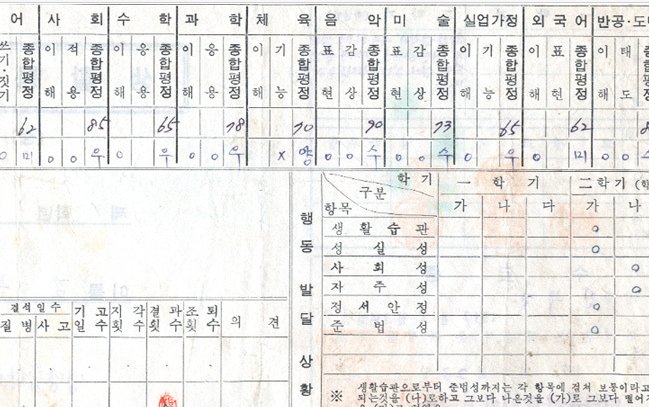 어 사회 수학 과학 체육 음악 미술 실업가정 외국어 반공·도
쓰기·짓기 종합평정 이해 적용 종합평정 이해 응용 종합평정 이해 응용 종합평정 이해 기능 종합평정 표현 감상 종합평정 표현 감상 종합평정 이해 기능 종합평정 이해 표현 종합평정 이해 태도 종합평정
62 85 65 78 70 90 73 65 62 8
0 미 0 0 우 0 우 0 우 x 양 0 0 수 0 0 수 0 우 0 미 0 0 수
학기 一학기 二학기 (학
구분
항목 가 나 다 가 나
행동발달상황
생활습관 0
성실성 0
사회성 0
자주성 0
정서안정 0
준법성 0
결석일수 기고일수 지각횟수 결과횟수 조퇴횟수 의견
질병 사고
※ 생활습관으로부터 준법성까지는 각 항목에 걸쳐 보통이라고
되는것을 (나)로하고 그보다 나은것을 (가)로 그보다 떨어지